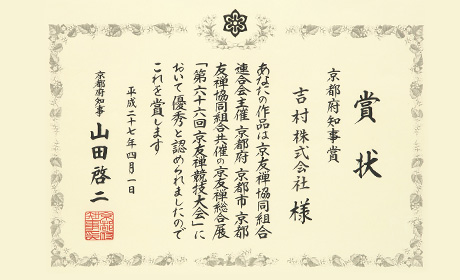 賞状
京都府知事賞
吉村株式会社 様
あなたの作品は京友禅協同組合
連合会主催 京都府 京都市 京都
友禅協同組合共催の京友禅総合展
「第六十六回京友禅競技大会」に
おいて優秀と認められましたので
これを賞します
平成二十七年四月一日
京都府知事 山田啓二